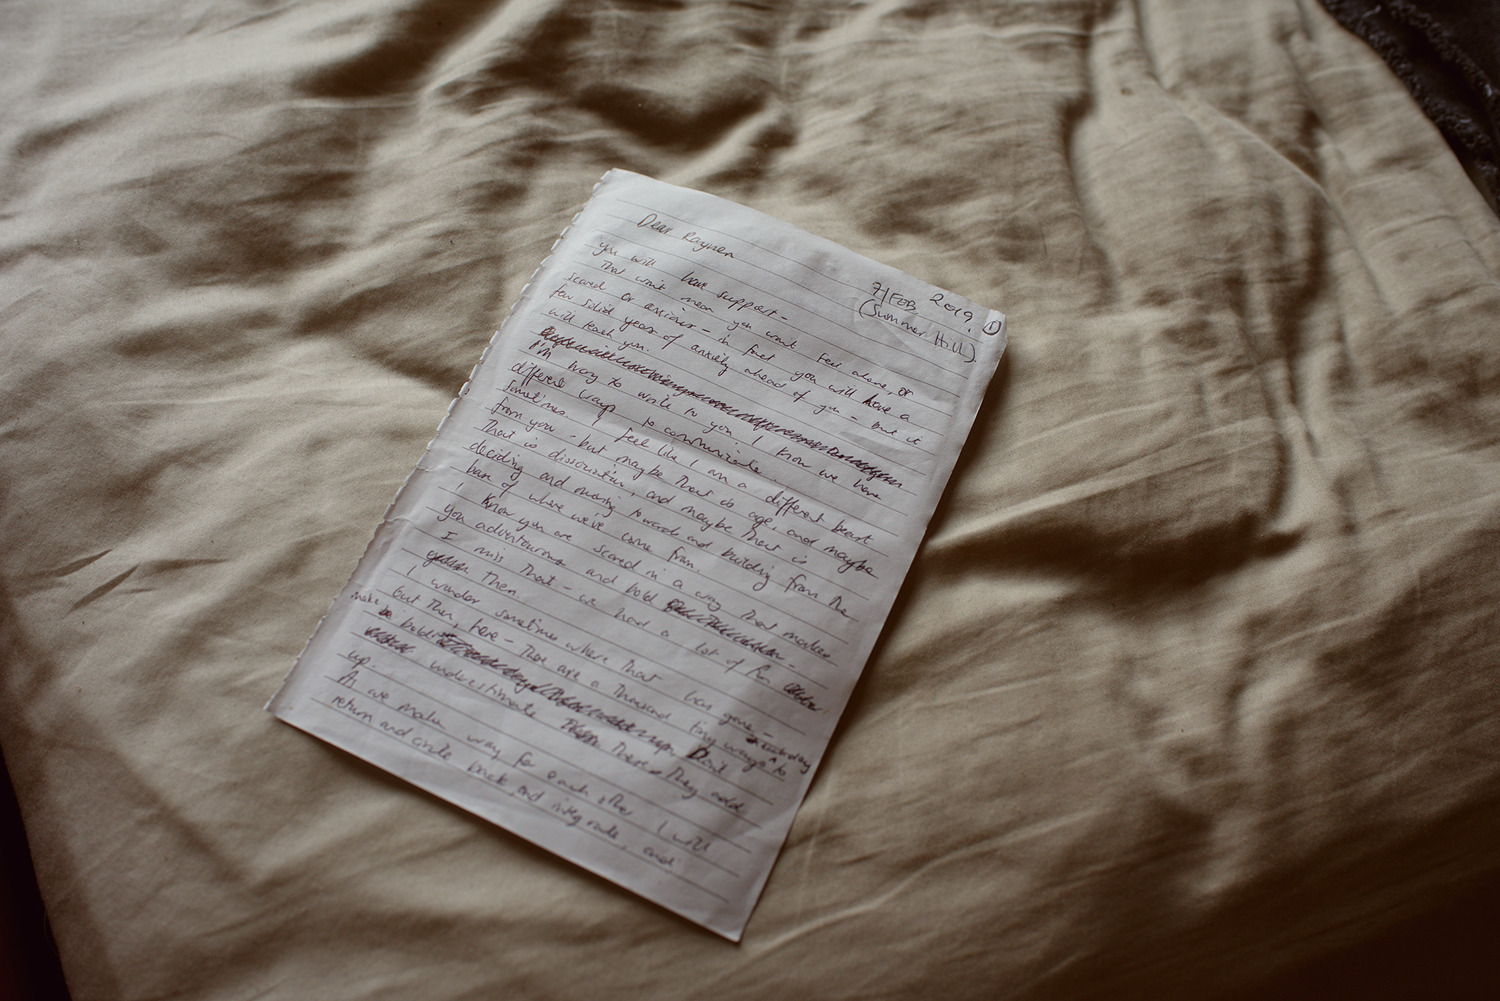 7/FEB 2019. 1
(Summer Hill).
Dear Raymen
you will have support -
That won't mean you won't feel alone, or
scared or anxious - in fact you will have a
few solid years of anxiety ahead of you - but it
will teach you.
I'm trying to write to you. I know we have
different ways to communicate.
Sometimes I feel like I am a different beast
from you - but maybe that is age, and maybe
That is dissociation, and maybe that is
deciding and moving toward and building from the
base of where we've come from.
I know you are scared in a way that makes
you adventurous and bold -
I miss that - we had a lot of fun
then.
I wonder sometimes where that has gone -
but then, here - there are a thousand tiny ways to
make be bold Don't
underestimate them There They add
up.
As we make way for each other I will
return and circle back, and integrate, and